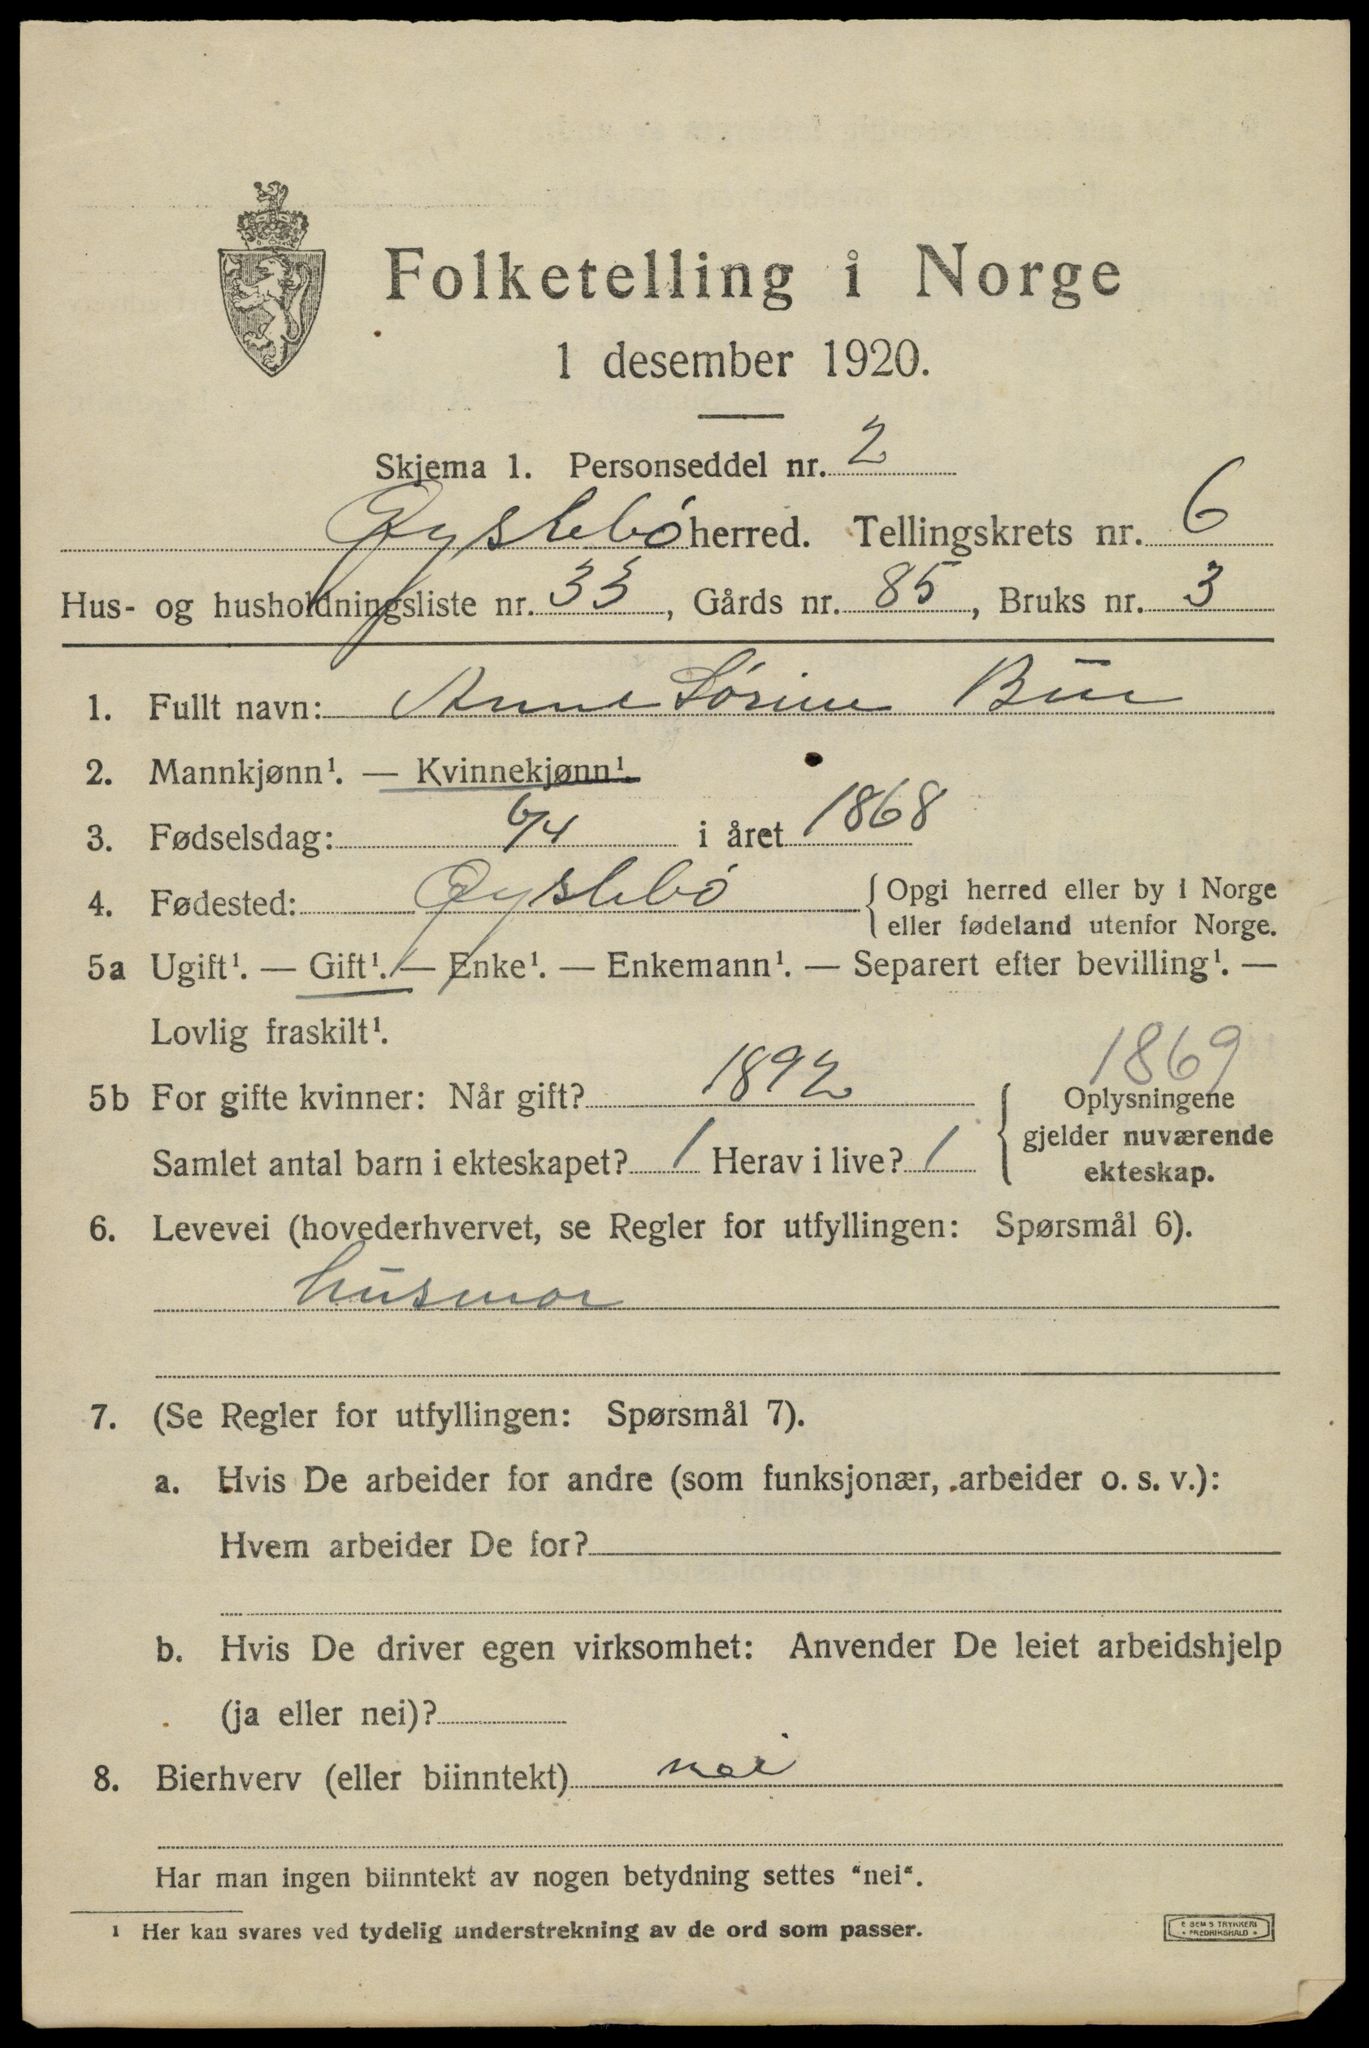 Folketelling i Norge
1 desember 1920.
Skjema 1. Personseddel nr. 2
Øyslebø herred. Tellingskrets nr. 6
Hus- og husholdningsliste nr. 33, Gårds nr. 85, Bruks nr. 3
1. Fullt navn: Anne Sørine Bue
2. Mannkjønn¹. — Kvinnekjønn¹.
3. Fødselsdag: 6/4 i året 1868
4. Fødested: Øyslebø { Opgi herred eller by i Norge
eller fødeland utenfor Norge.
5a Ugift¹. — Gift¹. — Enke¹. — Enkemann¹. — Separert efter bevilling¹. —
Lovlig fraskilt¹.
1869
5b For gifte kvinner: Når gift? 1892
Samlet antal barn i ekteskapet? 1 Herav i live? 1
Oplysningene
gjelder nuværende
ekteskap.
6. Levevei (hovederhvervet, se Regler for utfyllingen: Spørsmål 6).
husmor
7. (Se Regler for utfyllingen: Spørsmål 7).
a. Hvis De arbeider for andre (som funksjonær, arbeider o. s. v.):
Hvem arbeider De for?
b. Hvis De driver egen virksomhet: Anvender De leiet arbeidshjelp
(ja eller nei)?
8. Bierhverv (eller biinntekt) nei
Har man ingen biinntekt av nogen betydning settes "nei".
¹ Her kan svares ved tydelig understrekning av de ord som passer.
E SEM'S TRYKKERI
• FREDRIKSHALD •